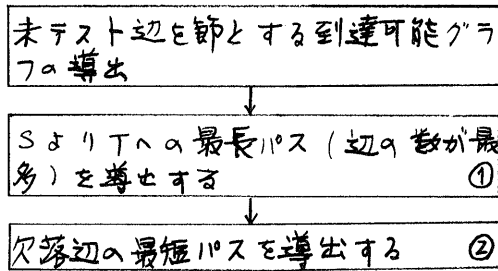 未テスト辺を節とする到達可能グラ
フの導出
SよりTへの最長パス(辺の数が最
多)を導出する ①
欠落辺の最短パスを導出する ②